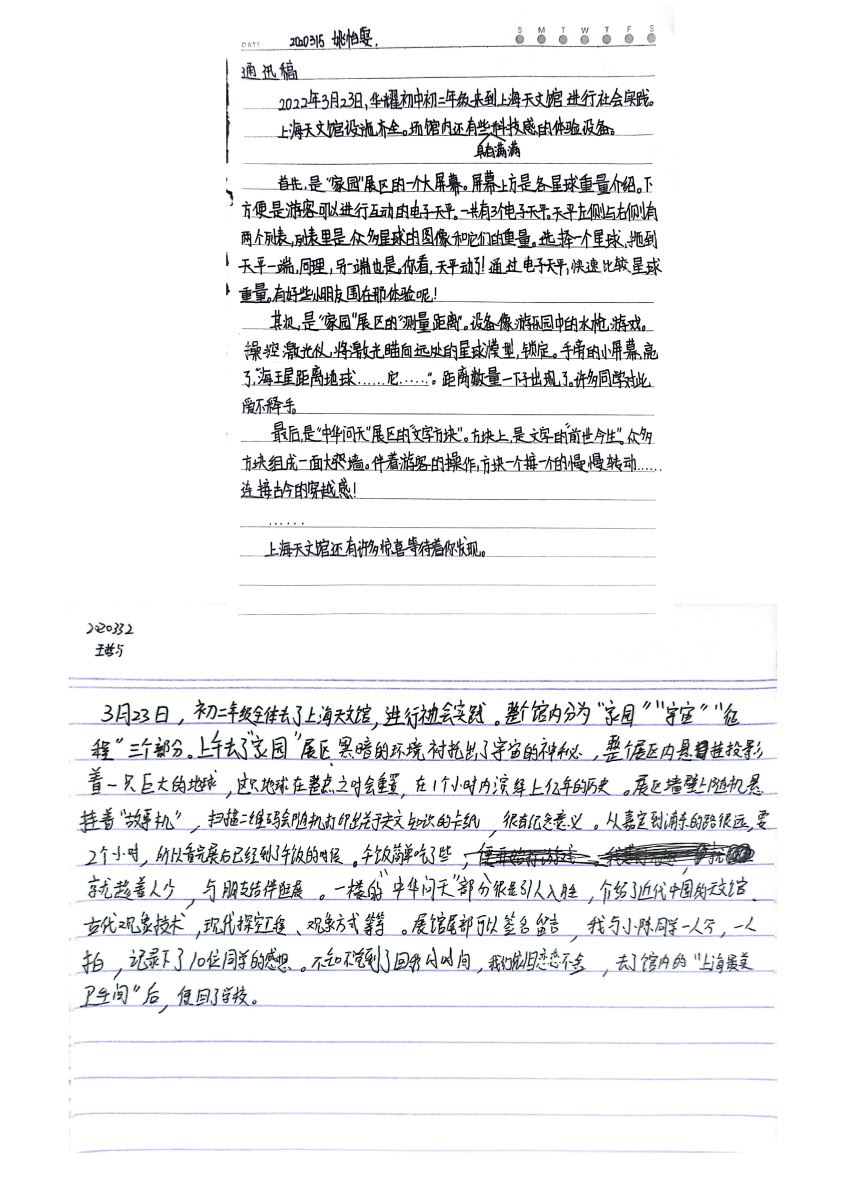 DATE 2020315 姚怡雯.
S M T W T F S
通讯稿
2022年3月23日,华耀初中初二年级来到上海天文馆进行社会实践。
上海天文馆设施齐全。场馆内还有些科技感的体验设备。
满满
首先,是“家园”展区的一个大屏幕。屏幕上方是各星球重量介绍。下
方便是游客可以进行互动的电子天平。一共有3个电子天平。天平左侧与右侧有
两个列表,列表里是众多星球的图像和它们的重量。选择一个星球,拖到
天平一端,同理,另一端也是。你看,天平动了!通过电子天平,快速比较星球
重量。有好些小朋友围在那体验呢!
其次,是“家园”展区的“测量距离”。设备像游乐园中的水枪游戏。
操控激光仪,将激光瞄向远处的星球模型,锁定。手旁的小屏幕亮
了,“海王星距离地球……它……”。距离数量一下子出现了。许多同学对此
爱不释手。
最后,是“中华问天”展区的“文字方块”。方块上,是文字的“前世今生”。众多
方块组成一面大墙。伴着游客的操作,方块一个接一个的慢慢转动……
连接古今的穿越感!
……
上海天文馆还有许多惊喜等待着你发现。
2020332
3月23日,初二年级全体去了上海天文馆,进行社会实践。整个馆内分为“家园”“宇宙”“征
程”三个部分。上午去了“家园”展区,黑暗的环境衬托出了宇宙的神秘,整个展区内悬挂投影
着一只巨大的地球,这只地球在整点之时会重置,在1个小时内演绎上亿年的历史。展区墙壁上随机悬
挂着“故事机”,扫描二维码会随机打印出关于天文知识的卡纸,很有纪念意义。从嘉定到浦东的路很远,要
2个小时,所以看完展后已经到了午饭的时候。午饭简单吃了些,
就趁着人少,与朋友结伴逛展。一楼的“中华问天”部分很是引人入胜,介绍了近代中国的天文馆、
古代观象技术,现代探空工程、观象方式等等。展馆尾部可以签名留言,我与小陈同学一人写,一人
拍,记录下了10位同学的感想。不知不觉到了回程的时间,我们依旧恋恋不舍,去了馆内的“上海最美
卫生间”后,便回了学校。